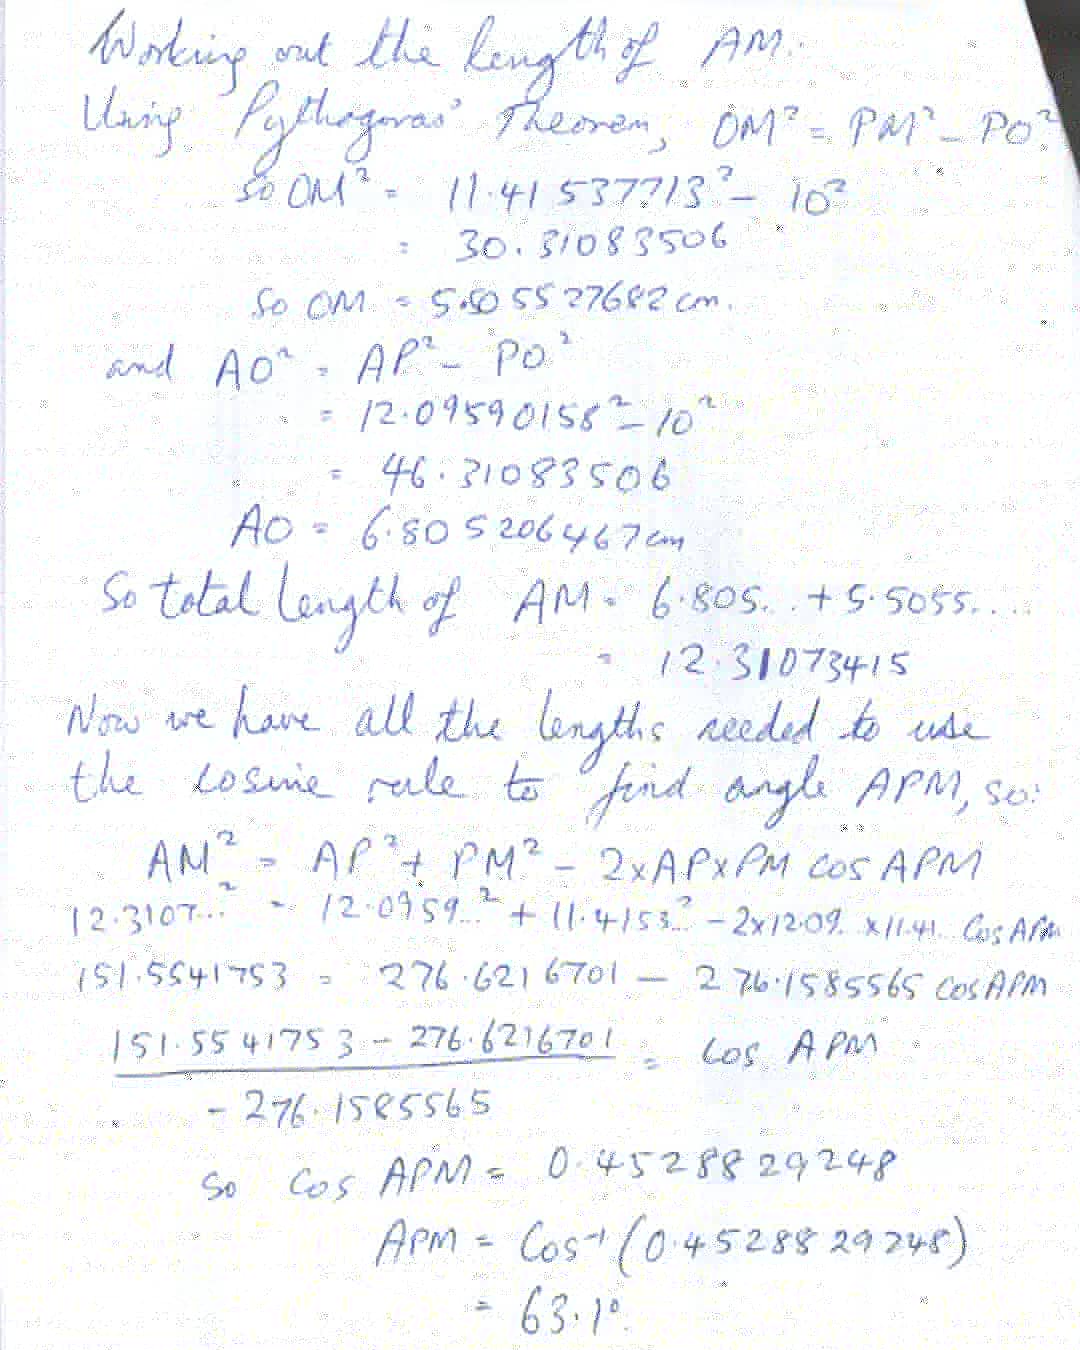 Working out the length of AM.
Using Pythagoras' Theorem, OM² = PM² - PO².
so OM² = 11.41537713² - 10²
= 30.31083506
So OM = 5.505527682 cm.
and AO² = AP² - PO²
= 12.09590158² - 10²
= 46.31083506
AO = 6.805206467 cm
So total length of AM = 6.805... + 5.5055....
= 12.31073415
Now we have all the lengths needed to use
the cosine rule to find angle APM, so:
AM² = AP² + PM² - 2xAPxPM cos APM
12.3107...² = 12.0959...² + 11.4153...² - 2x12.09.. x11.41.. Cos APM
151.5541753 = 276.6216701 - 276.1585565 cos APM
151.5541753 - 276.6216701 = cos APM
- 276.1585565
So cos APM = 0.4528829248
APM = Cos⁻¹ (0.4528829248)
= 63.1°.